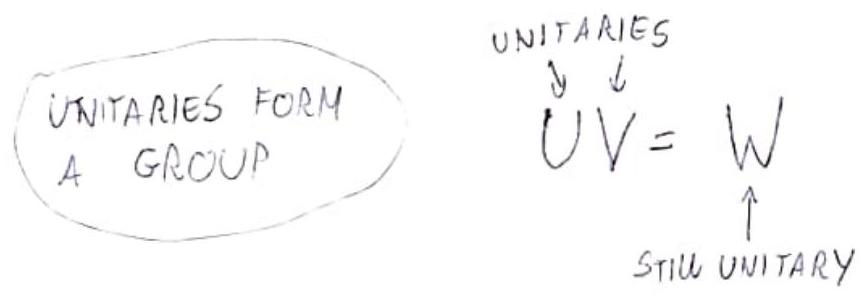 UNITARIES FORM
A GROUP
UNITARIES
UV = W
STILL UNITARY